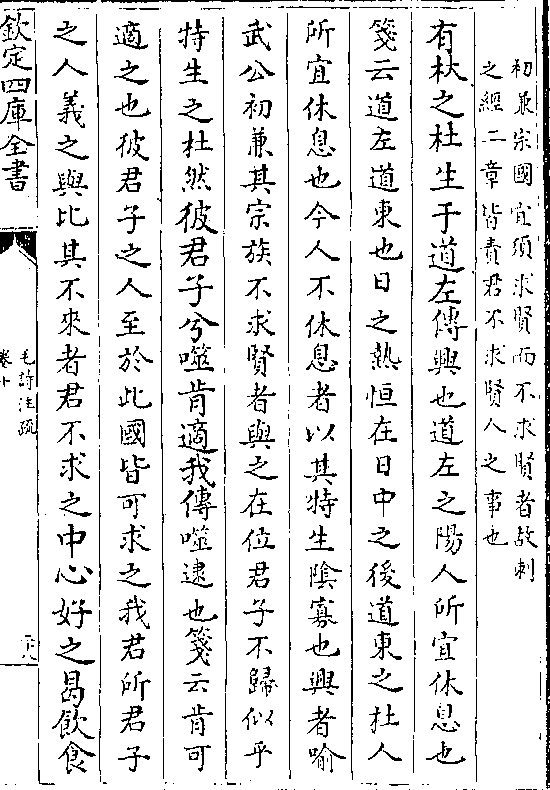 初兼宗國宜須求賢而不求賢者故刺
之經二章皆責君不求賢人之事也
有杕之杜生于道左傳興也道左之陽人所宜休息也
箋云道左道東也日之熱恒在日中之後道東之杜人
所宜休息也今人不休息者以其特生隂寡也興者喻
武公初兼其宗族不求賢者與之在位君子不歸似乎
特生之杜然彼君子兮噬肯適我傳噬逮也箋云肯可
適之也彼君子之人至於此國皆可求之我君所君子
之人義之與比其不來者君不求之中心好之曷飲食
欽定四庫全書
毛詩注疏
卷十
二十八